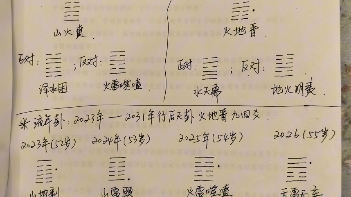 山火賁 火地晋
反对： ；反对： 反对： ；反对：
泽水困 火雷噬嗑 水天需 地火明夷
※ 流年卦：2023年 — 2031年行后天卦 火地晋 九四爻
2023年(52岁) 2024年(53岁) 2025年(54岁) 2026(55岁)
山地剥 火雷噬嗑 天雷无妄